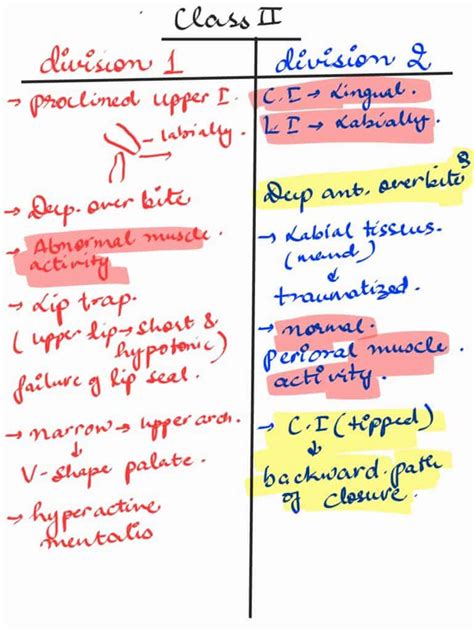 Class II
division 1
→ Proclined upper I.
- labially.
→ Deep. over bite
→ Abnormal muscle.
activity
→ Lip trap.
(upper lip → short &
hypotonic)
failure of lip seal.
→ narrow → upper arch.
↓
V-shape palate.
→ hyperactive
mentalis
division 2
C.I → Lingual.
LI → Labially.
Deep ant. overbite
→ Labial tissues.
(mand)
↓
traumatized.
→ normal.
Perioral muscle.
activity.
→ C.I (tipped)
↓
backward. path
of closure.